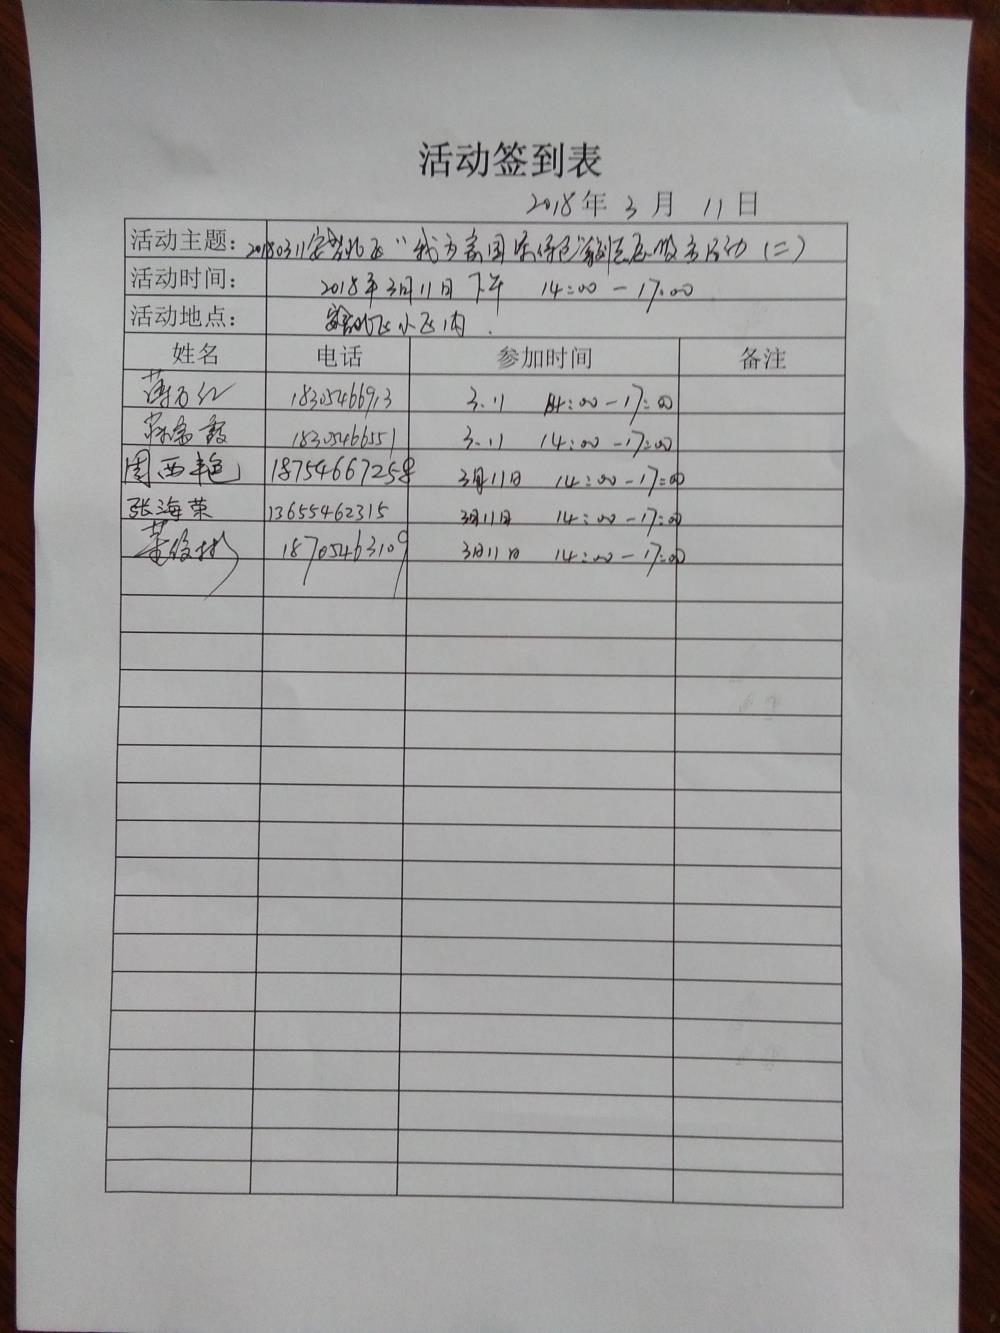 活动签到表
2018年 3月 11日
活动主题： 20180311 "我为 (二)
活动时间： 2018年3月11日 下午 14:00-17:00
活动地点： 小区内.
姓名 电话 参加时间 备注
18305466913 3.11 14:00-17:00
18305466551 3.11 14:00-17:00
周西艳 18754667258 3月11日 14:00-17:00
张海荣 13655462315 3月11日 14:00-17:00
18705463109 3月11日 14:00-17:00